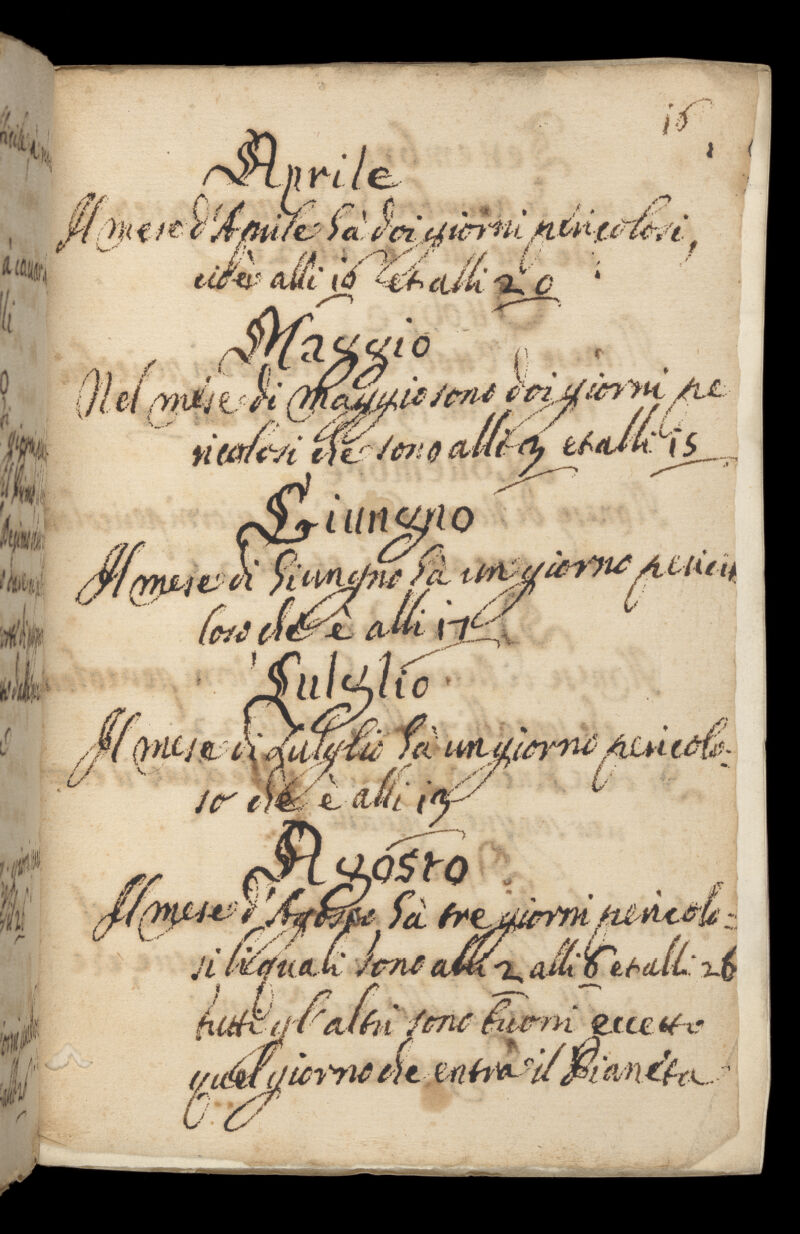 16
Aprile
Il mese d'Aprile hà doi giorni pericolosi,
cioè alli 10 et alli 20
Maggio
Nel mese di maggio sono doi giorni pe
ricolosi che sono alli 3 et alli 15
Giungno
Il mese di Giungno hà un giorno pericu
loso che è alli 17
Lulglio
Il mese di Lulglio hà un giorno pericolo-
so che è alli 13
Agosto
Il mese d'Agosto hà tre giorni pericolo=
si li quali sono alli 2 alli 6 et alli 26
tutti gl'altri sono buoni eccetto
quel giorno che entra il Pianeta